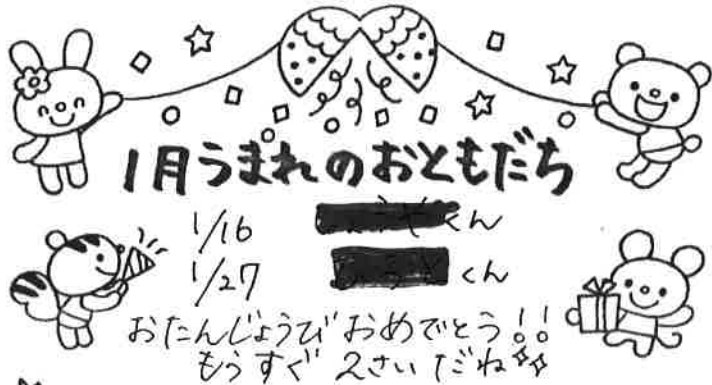 1月うまれのおともだち
1/16 くん
1/27 くん
おたんじょうびおめでとう!!
もうすぐ2さいだね